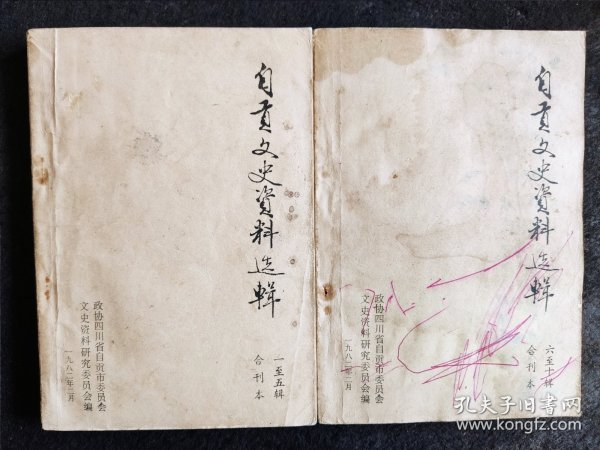 自贡文史资料选辑
一至五辑
合刊本
政协四川省自贡市委员会
文史资料研究委员会编
一九八二年二月
自贡文史资料选辑
六至十辑
合刊本
政协四川省自贡市委员会
文史资料研究委员会编
一九八二年二月
孔夫子旧书网
www.kongfz.com